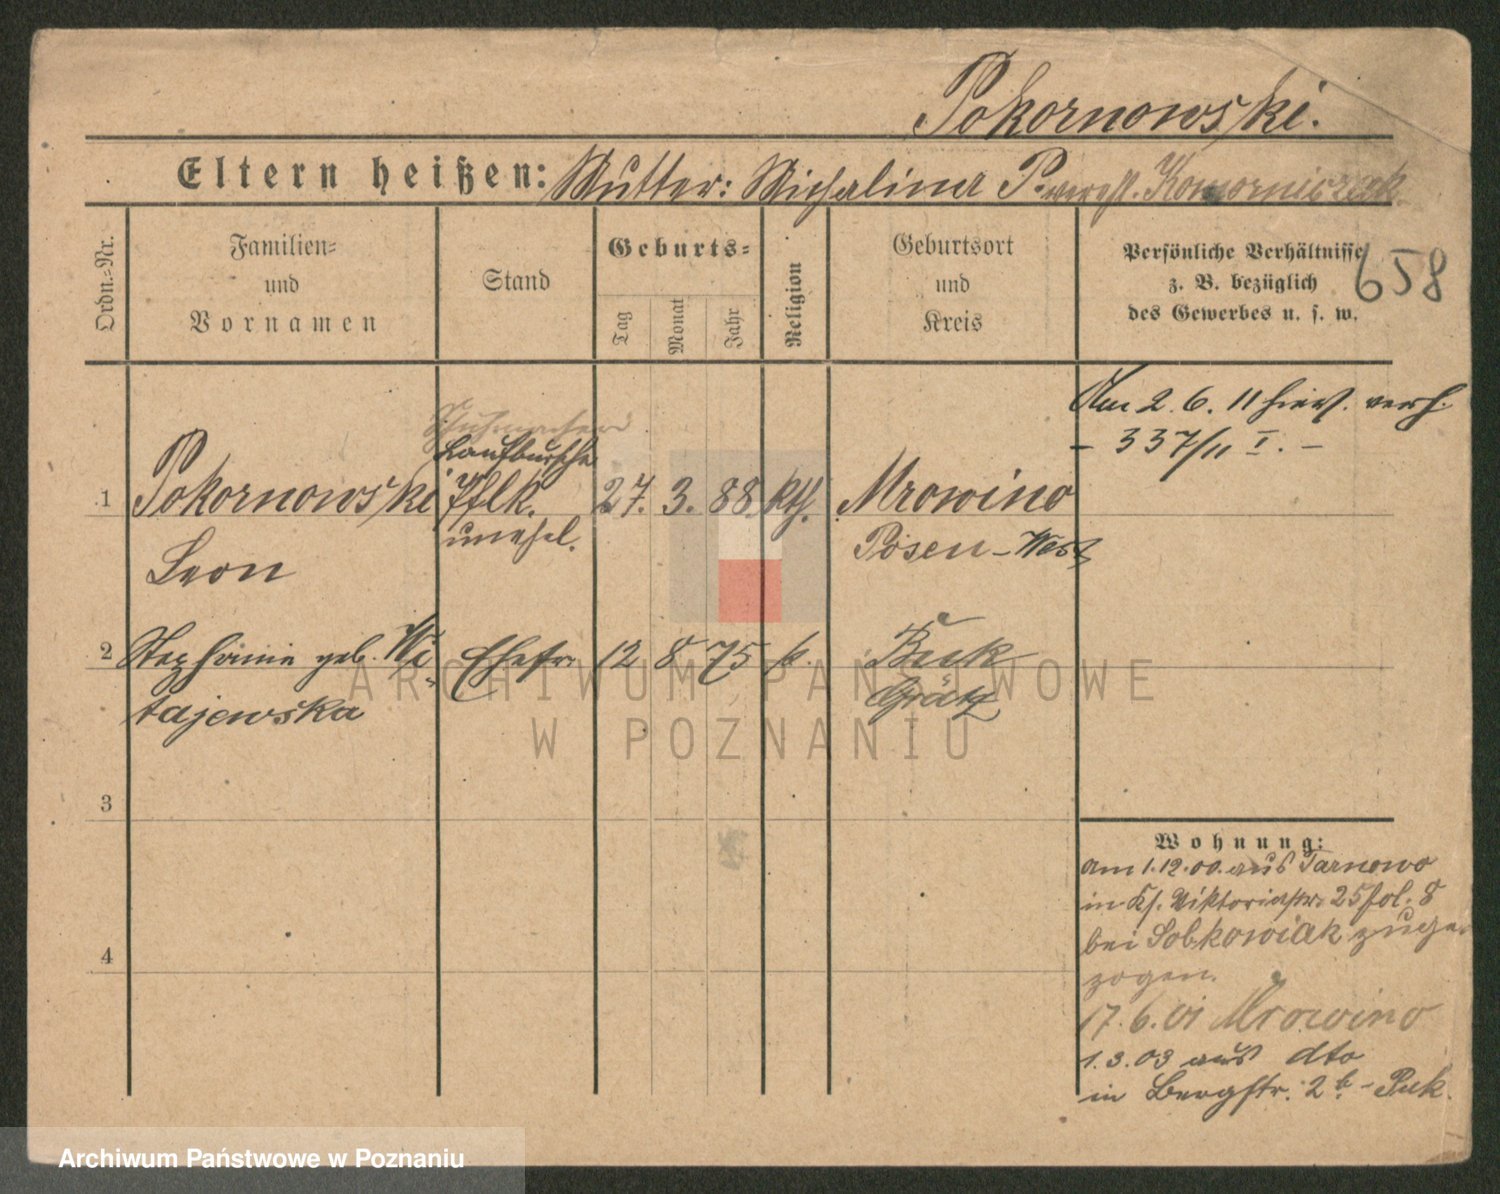 Pokornowski.
Eltern heißen: Mutter: Michalina P. verehl. Komorniczak
Ordn.-Nr.
Familien-
und
Vornamen
Stand
Geburts-
Tag
Monat
Jahr
Religion
Geburtsort
und
Kreis
Persönliche Verhältnisse
z. B. bezüglich
des Gewerbes u. s. w.
658
Am 2. 6. 11 hies. verh.
- 337/11 I. -
Laufbursche
1 Pokornowski 27. 3. 88. kth. Mrowino
unehel.
Leon
Posen-West
2 Stephanie geb. Wi- Ehefr. 12 8 75 k. Buk
tajewska
Grätz
3
4
Wohnung:
am 1.12.00. aus Tarnowo
in Viktoriastr. 25 fol. 8
bei Sobkowiak zuge-
zogen.
17.6.01 Mrowino
1.3.03 aus dto
in Bergstr. 2b - Puk.
ARCHIWUM PAŃSTWOWE
W POZNANIU
Archiwum Państwowe w Poznaniu